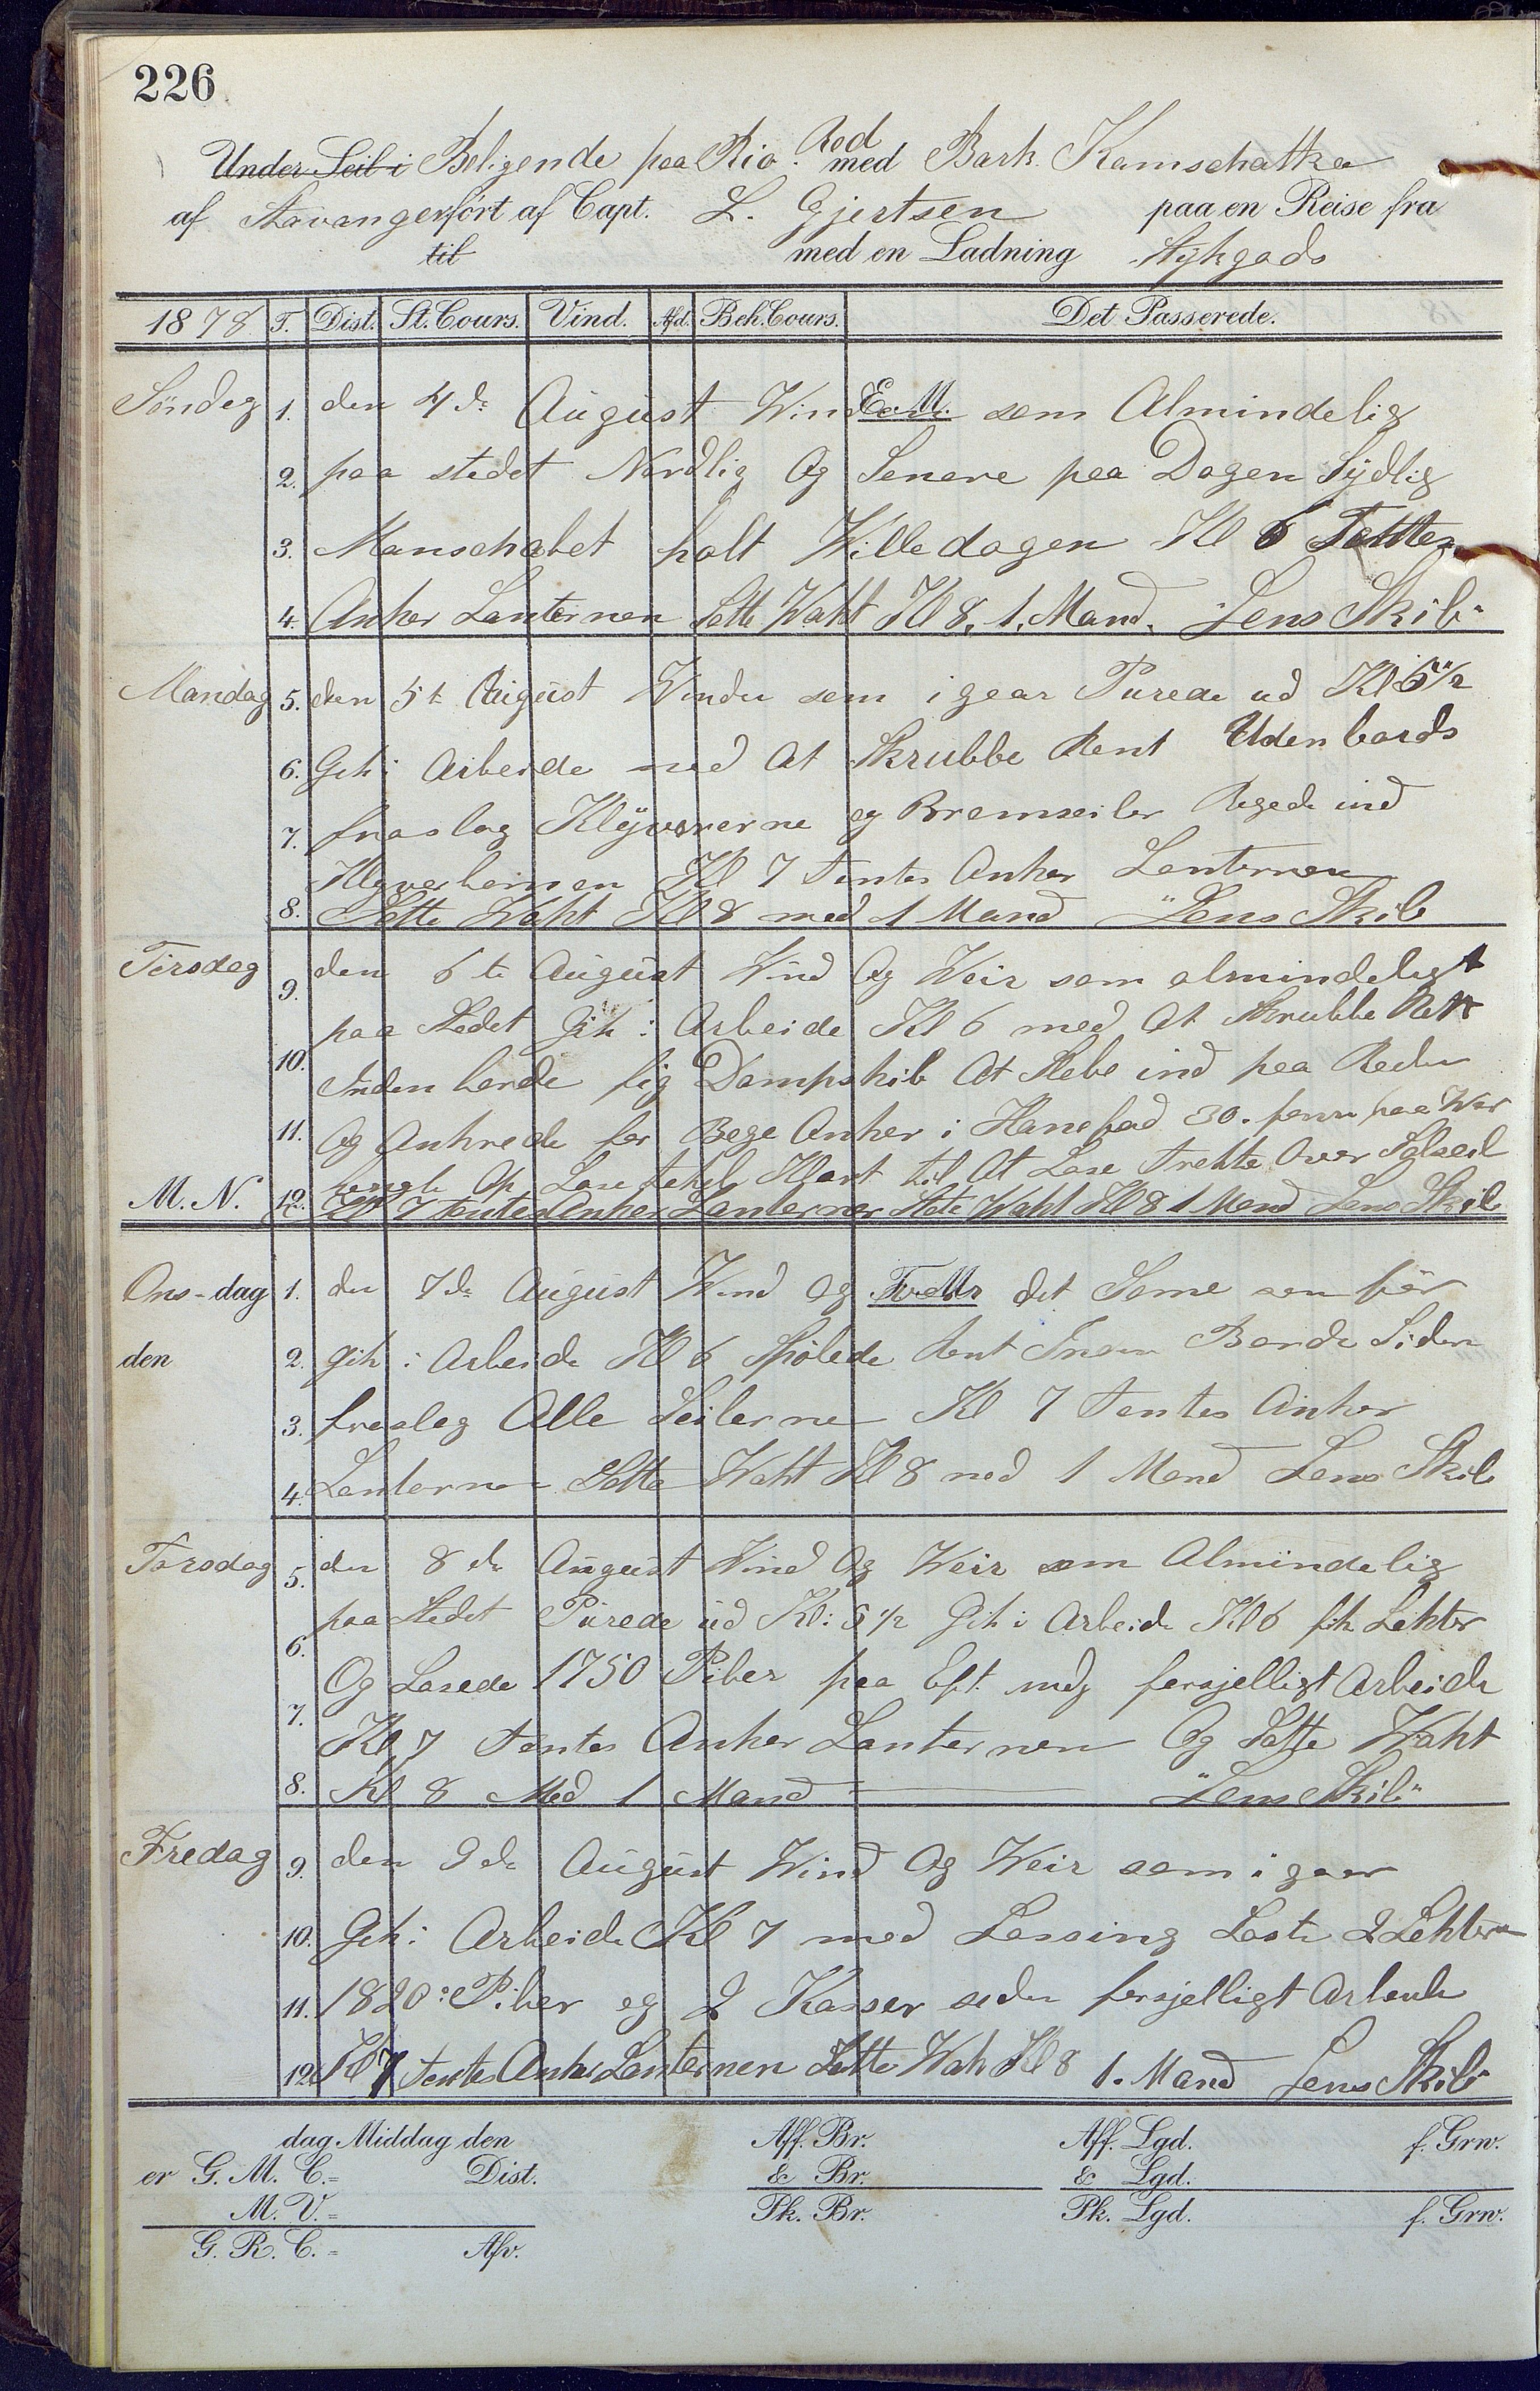 226
Under Seil i Beligende paa Rio Red med Bark Kamschatka
af Stavanger ført af Capt. L. Gjertsen paa en Reise fra
til med en Ladning Stykgods
1878 T. Dist. St. Cours. Vind. Afd. Beh. Cours. Det Passerede.
Søndag 1. den 4de August Vinden E.M. som Almindelig
2. paa stedet Nordlig Og Senere paa Dagen Sydlig
3. Manschabet holt Willedagen Kl 6 Tentes
4. Anker Lanternen Satte Waht Kl 8, 1, Mand. Lens Skib"
Mandag 5. den 5t August Vinden som i gaar Purede ud Kl 5 1/2
6. Gik i Arbeide med At Skrubbe Rent Udenbords
7. fraslog Klyverne og Bramseiler Regede ind
Klyverbommen Kl 7 Tentes Anker Lanternen
8. Satte Waht Kl 8 med 1 Mand "Lens Skib
Tirsdag 9. den 6te August Wind Og Weir som almindeligt
paa Stedet Gik i Arbeide Kl 6 med At Skrubbe Rent
10. Inden borde fig Dampskib At Slebe ind paa Reden
11. Og Ankrede for Bege Anker i Hanefad 30. favn paa Wær
Op Lose Klart til At Lose Trekte Over Solseil
M. N. 12. Kl 7 tentes Anker Lanterner Sate Waht Kl 8 1 Mand Lens Skib
Ons-dag 1. den 7de August Wind og F.M. det Same som før
den 2. gik i Arbeide Kl 6 Spølede Rent Inen Borde Siden
3. fraslog Alle Seilerne Kl 7 Tentes Anker
4. Lanternen Satte Waht Kl 8 med 1 Mand Lens Skib
Torsdag 5. den 8de August Wind Og Weir som Almindelig
paa Stedet Purede ud Kl: 5 1/2 Gik i Arbeide Kl 6 fik Lekter
6. Og Losede 1750 Piber paa Eft. mdg forsjelligt Arbeide
7. Kl 7 tentes Anker Lanternen Og Satte Waht
8. Kl 8 Med 1 Mand "Lens Skib"
Fredag 9. den 9de August Wind Og Weir som i gaar
10. Gik i Arbeide Kl 7 med Lossing Loste 2 Lekter
11. 1820 Piber og 2 Kasser siden forsjelligt Arbeide
12. Kl 7 tentes Anker Lanternen Satte Wah Kl 8 1. Mand Lens Skib
dag Middag den Aff. Br. Aff. Lgd. f. Grw.
er G. M. C.= Dist. & Br. & Lgd.
M. V.= Pk. Br. Pk. Lgd. f. Grw.
G. R. C.= Afv.